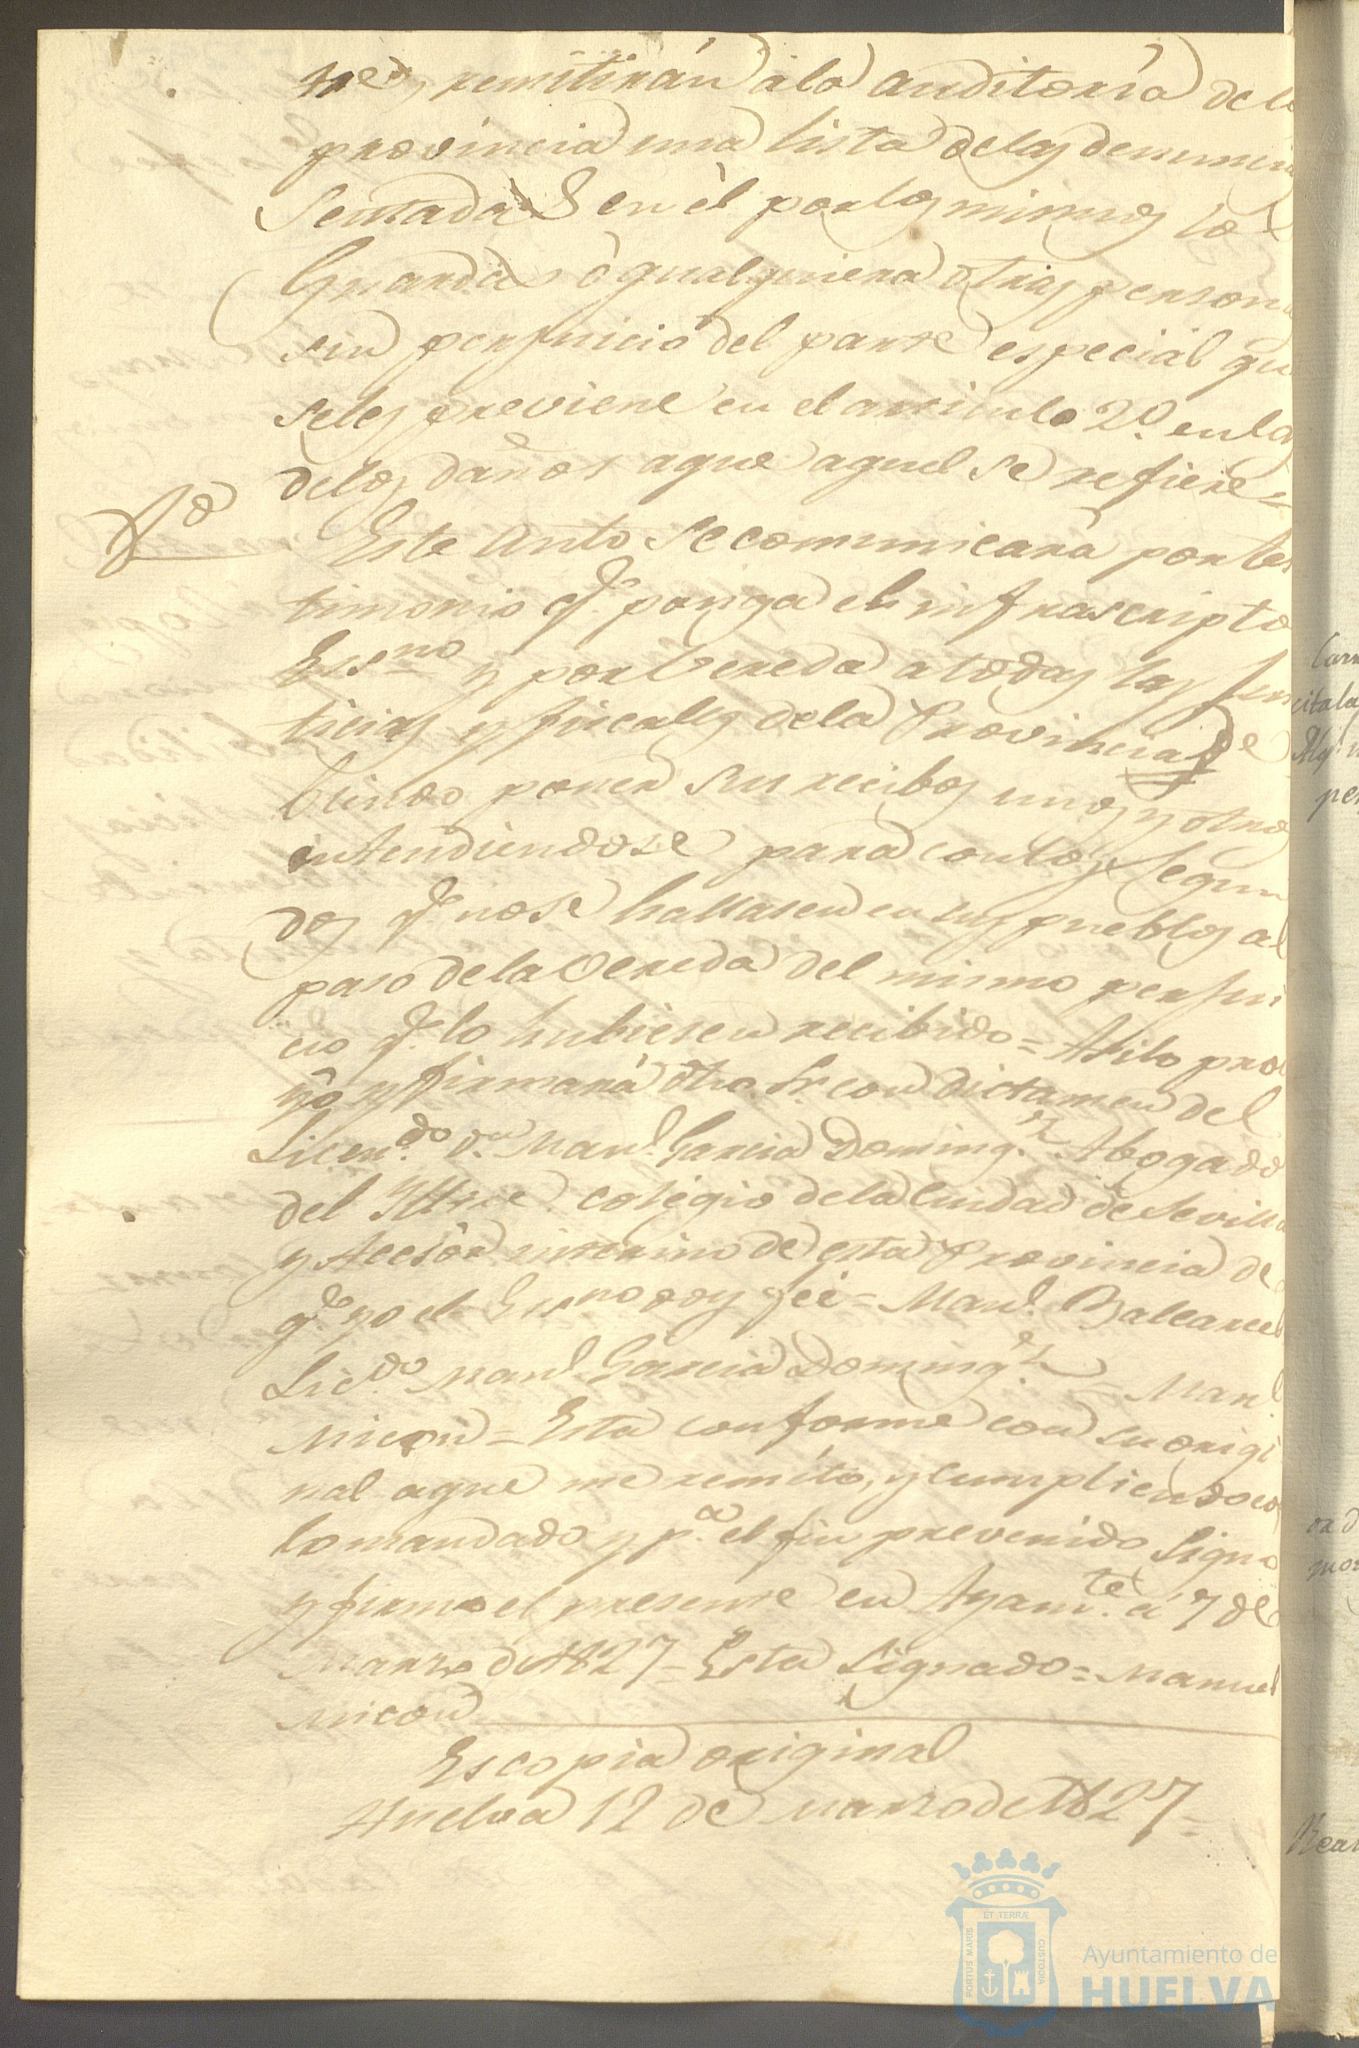 tres remitirán à la auditoría de la
provincia una lista delas denuncia
sentadas en él por los mismos lo
Guardas ò qualquiera otras persona
sin perjuicio del parte especial que
seles previene en el articulo 2º. en los
delos daños aque aquel se refiere =
Este Auto se comunicará por tes
timonio qe. ponga el infrascripto
Essno y por Vereda atodas las Jus
ticias y fiscales dela Provincia de
biendo poner sus recibos unos y otros
entendiendose para conlos segun
dos qe. nose hallasen en sus pueblos al
paso dela Vereda del mismo perjui
cio qe. lo hubiesen recibido = Asilo pro
yò y firmará dho. Sr. con dictamen del
Licendo. dn. Manl. Garcia Domingz. Abogado
del Yltre. colegio dela Ciudad de Sevilla
y Acesòr interino de esta Provincia de
qe. yo el Essno doy feé = Manl. Balcarcel
Licdo. Manl. Garcia Domingz. = Manl
Micon = Esta conforme con su origi
nal aque me remito, y cumpliendo con
lo mandado y pa. el fin prevenido signo
y firmo el presente en Ayamte. à 7 de
Marzo de 1827 = Esta signado = Manuel
Micon
Es copia original
Huelva 12 de Marzo de 1827 =
Carr
citala
per
mor
ET TERRÆ
PORTUS MARIS
CUSTODIA
Ayuntamiento de
HUELVA